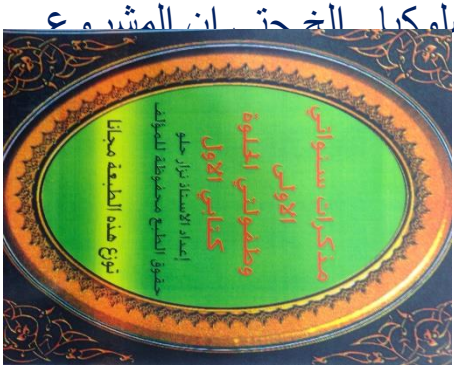 الخ حتى ان المشروع
مذكرات سنواتي
الاولى
وطفولتي الحلوة
كتابي الاول
إعداد الاستاذ نزار حلو
حقوق الطبع محفوظة للمؤلف
توزع هذه الطبعة مجانا